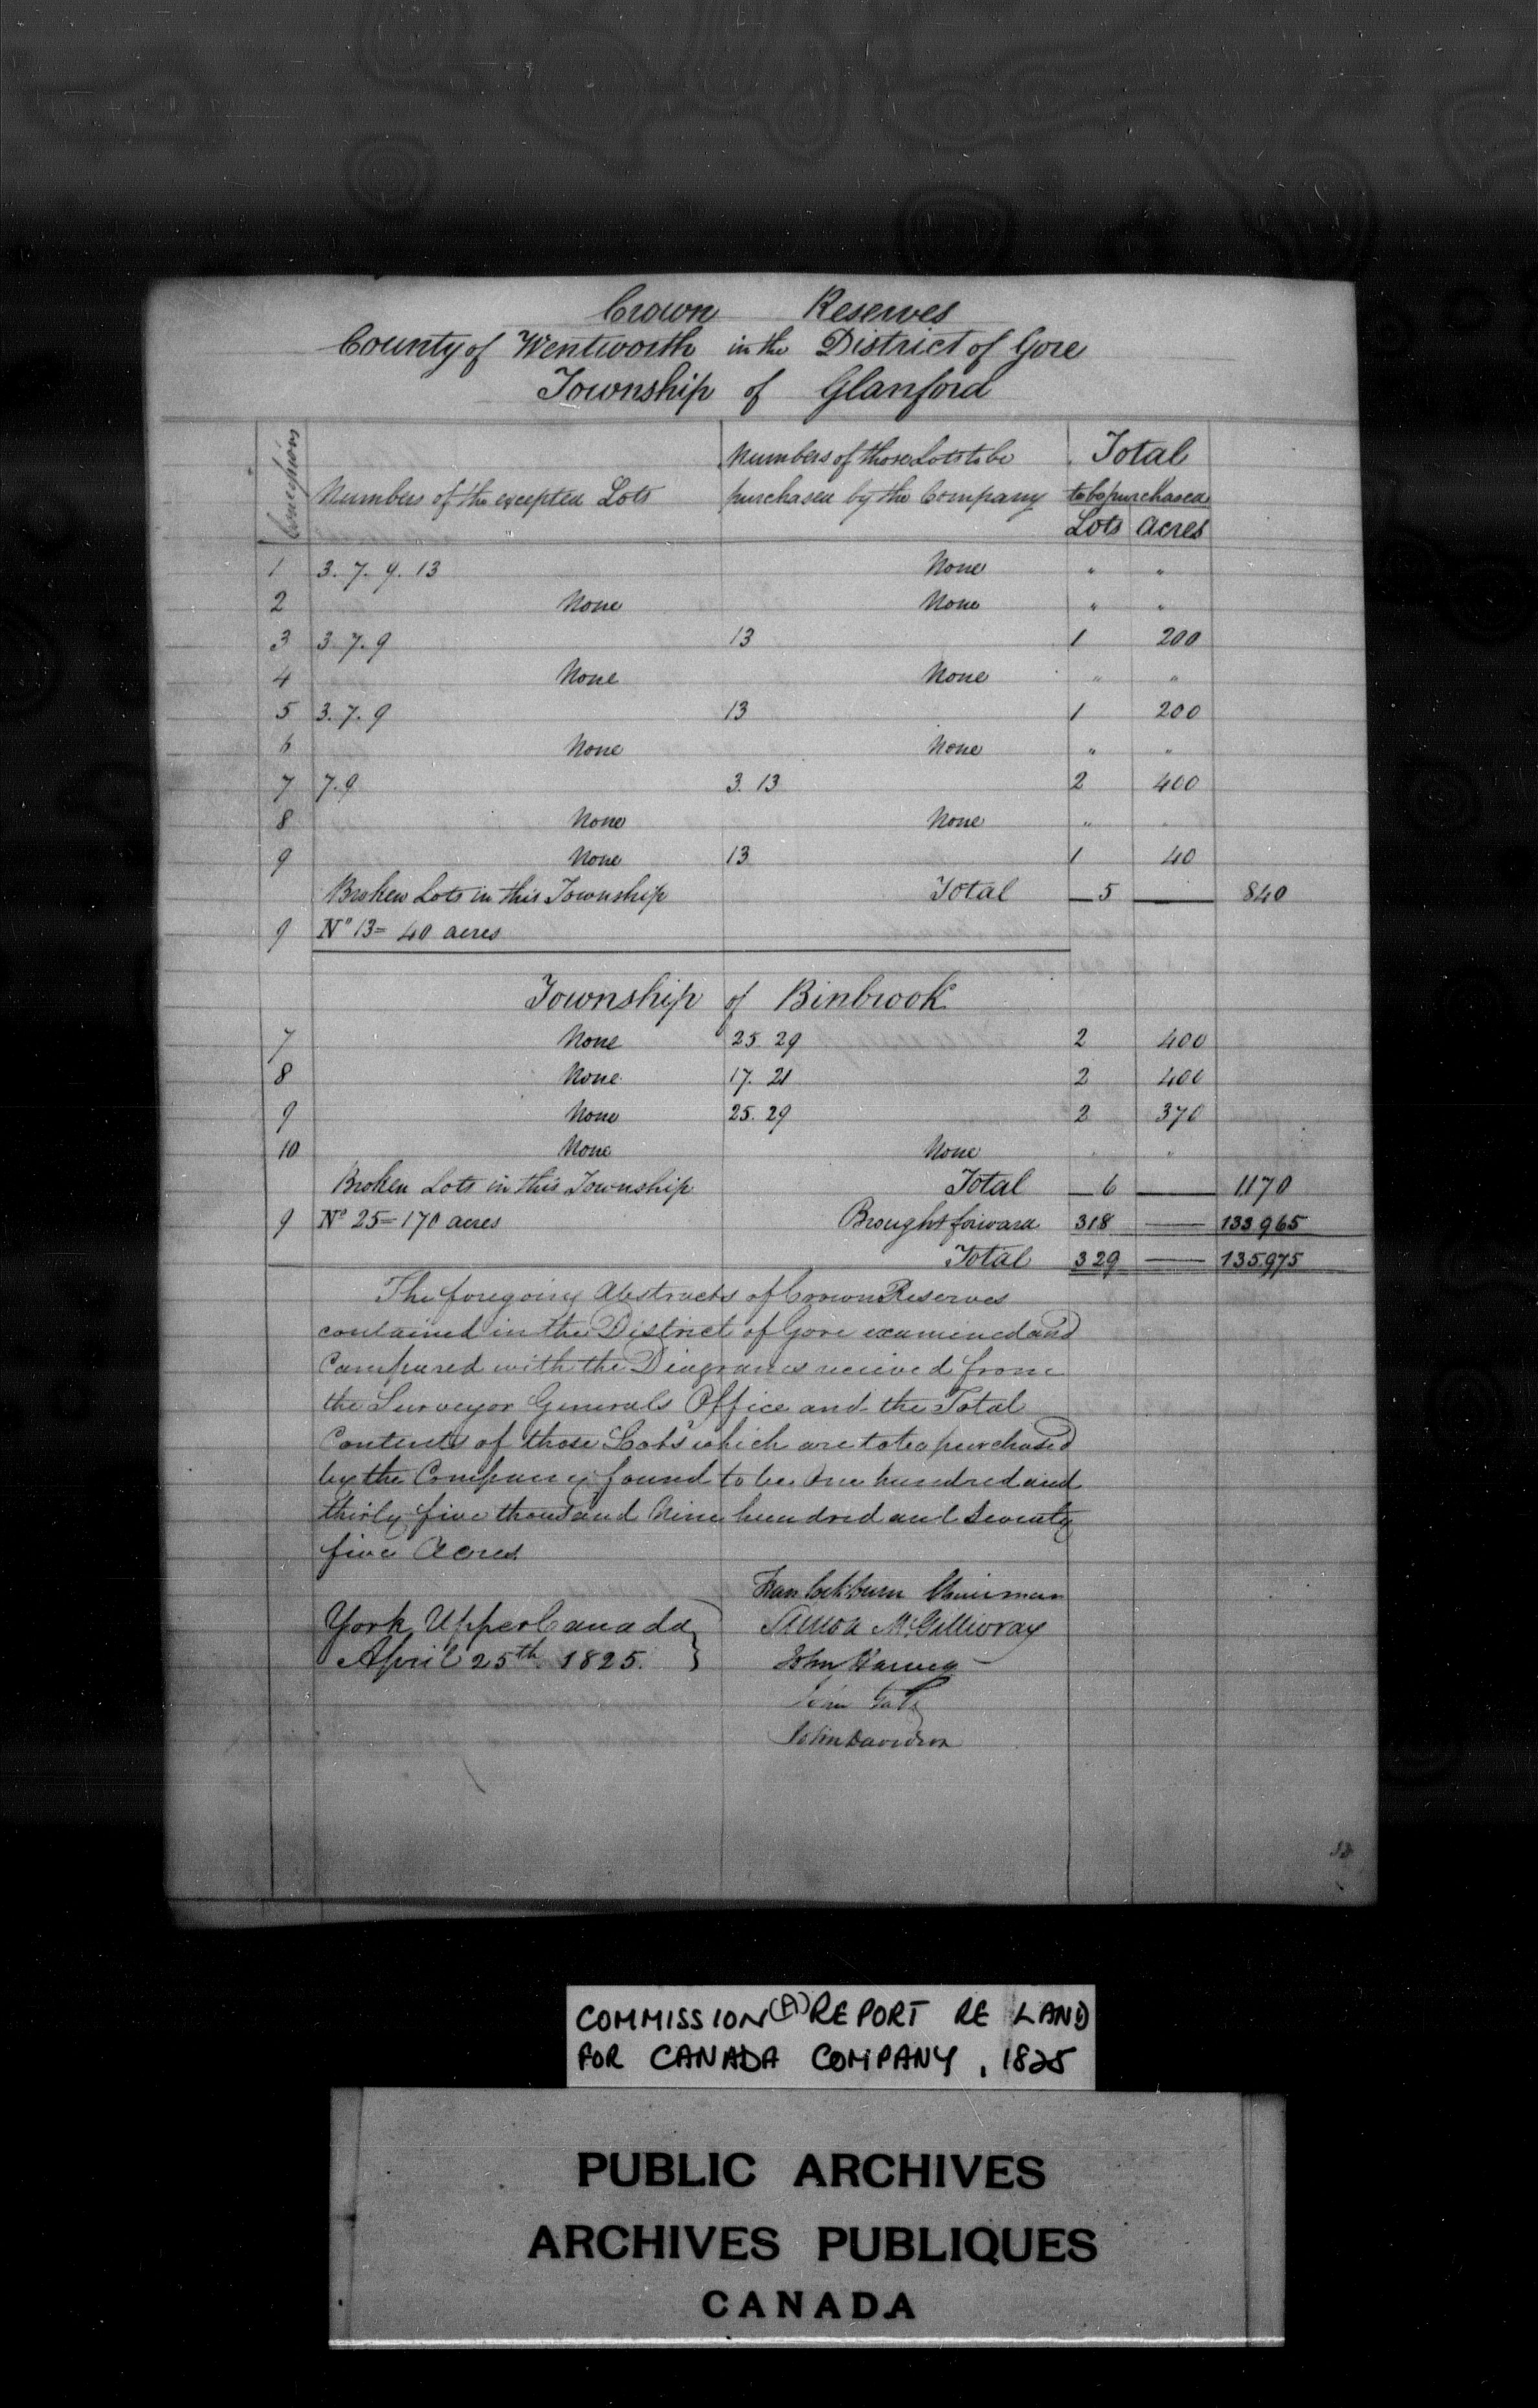 Crown Reserves
County of Wentworth in the District of Gore
Township of Glanford
Concessions
Numbers of the excepted Lots
Numbers of those Lots to be
purchased by the Company
Total
to be purchased
Lots Acres
1 3. 7. 9. 13 None " "
2 None None " "
3 3. 7. 9 13 1 200
4 None None " "
5 3. 7. 9 13 1 200
6 None None " "
7 7. 9 3. 13 2 400
8 None None " "
9 None 13 1 40
Broken Lots in this Township Total 5 840
9 No 13 = 40 acres
Township of Binbrook
7 None 25. 29 2 400
8 None 17. 21 2 400
9 None 25. 29 2 370
10 None None " "
Broken Lots in this Township Total 6 1170
9 No 25 = 170 acres Brought forward 318 133965
Total 329 135975
The foregoing Abstracts of Crown Reserves
contained in the District of Gore examined and
Compared with the Diagrams received from
the Surveyor Generals Office and the Total
Contents of those Lots which are to be purchased
by the Company found to be One hundred and
thirty five thousand Nine hundred and Seventy
five Acres.
York Upper Canada
April 25th 1825.
Fran Cockburn Chairman
Simon McGillivray
John Harvey
John Galt
John Davidson
COMMISSION (A) REPORT RE LAND
FOR CANADA COMPANY, 1825
PUBLIC ARCHIVES
ARCHIVES PUBLIQUES
CANADA